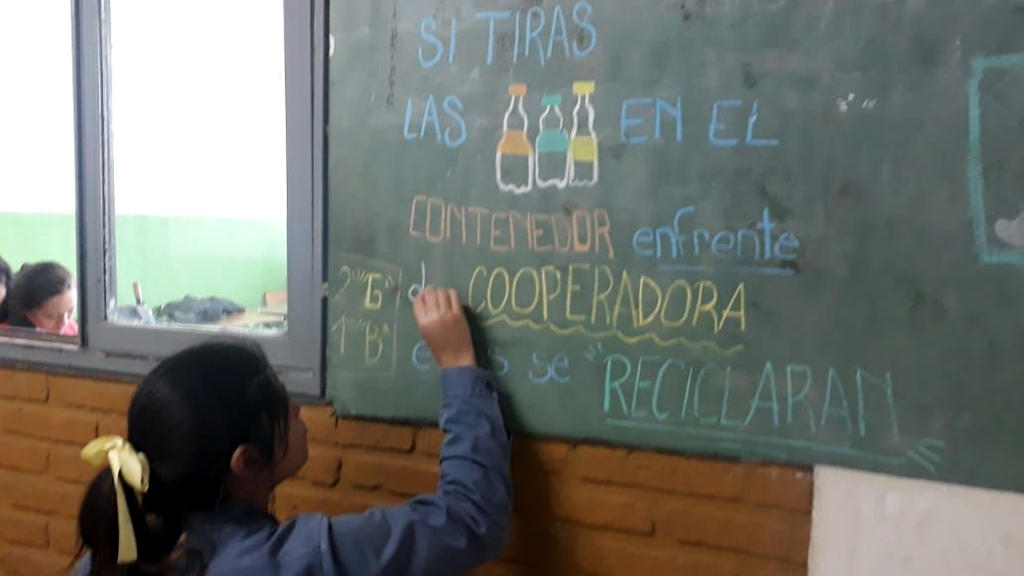 SI TIRAS
LAS EN EL
CONTENEDOR enfrente
COOPERADORA
se "RECICLARAN
2 "G"
1 "B"